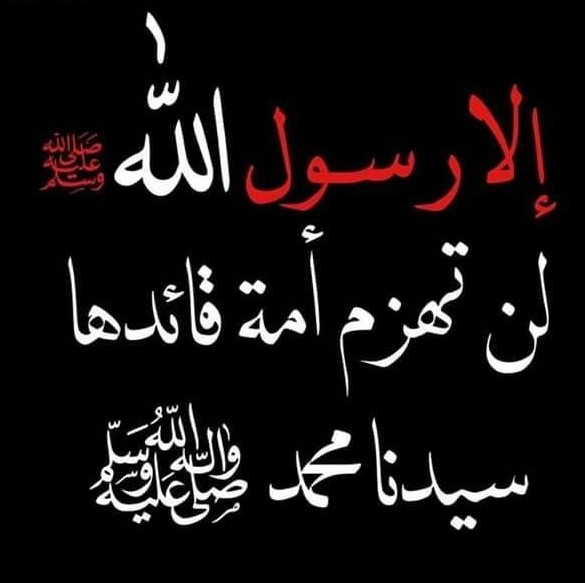 إلا رسول الله ﷺ
لن تهزم أمة قائدها
سيدنا محمد صلى الله عليه وآله وسلم